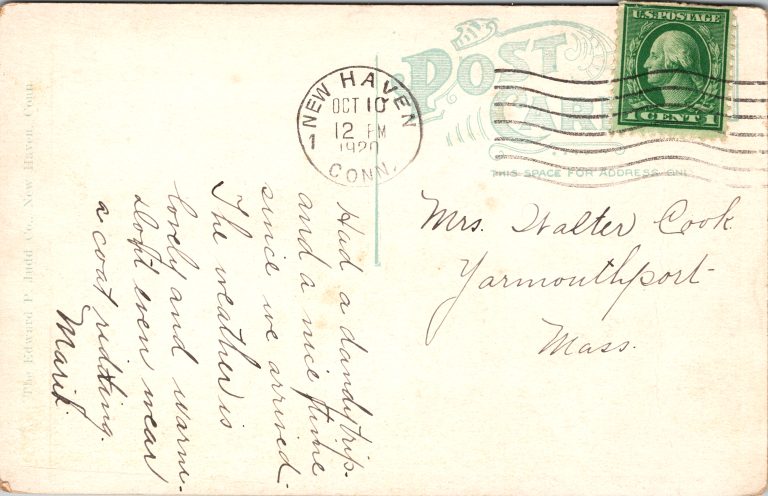 POST
CARD
THIS SPACE FOR ADDRESS ONLY
U.S. POSTAGE
1 CENT 1
NEW HAVEN
OCT 10
12 PM
1920
CONN.
1
Mrs. Walter Cook
Yarmouthport
Mass.
Had a dandy trip.
and a nice time
since we arrived.
The weather is
lovely and warm.
don't even wear
a coat ridding.
The Edward P. Judd Co., New Haven, Conn.